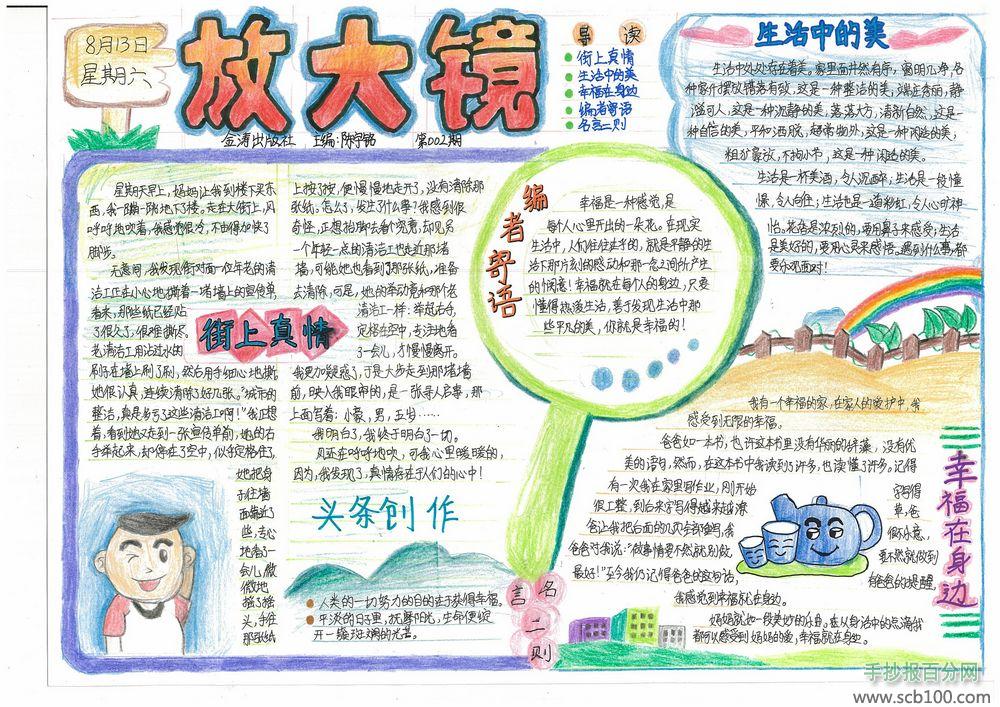 8月13日
星期六
放大镜
金涛出版社 主编:陈宇铭 第002期
导读
街上真情
生活中的美
幸福在身边
编者寄语
名言二则
生活中的美
生活中处处存在着美。家里面井然有序,窗明几净,各
种家什摆放错落有致,这是一种整洁的美,端庄秀丽,静
谧可人,这是一种沉静的美,落落大方,清新自然,这是一
种自信的美,平和洒脱,超常物外,这是一种闲适的美,
粗犷豪放,不拘小节,这是一种
生活是一杯美酒,令人沉醉;生活是一段憧
憬,令人向往;生活也是一道彩虹,令人心旷神
怡。花香是浓烈的,要用鼻子来感受;生活
是美好的,要用心来感悟。遇到什么事,都
要乐观面对!
星期天早上,妈妈让我到楼下买东
西,我一蹦一跳地下了楼。走在大街上,风
呼呼地吹着,我感觉很冷,不由得加快了
脚步。
无意间,我发现街对面一位年老的清
洁工正在小心地撕着一堵墙上的宣传单
看来,那些纸已经贴
了很久了,很难撕尽
老清洁工用沾过水的
刷子在墙上刷了刷,然后用手细心地撕
她很认真,连续清除了好几张。“城市的
整洁,真是多亏了这些清洁工啊!”我正想
着,看到她又走到一张宣传单前,她的右
手举起来,却停在了空中,似乎定格住了,
她把身
子往墙
面靠近了
些,专心
地看了一
会儿,微
微地
摇了摇
头,手在
那张纸
街上真情
上按了按,便慢慢地走开了,没有清除那
张纸。怎么了,发生了什么事?我感到很
奇怪,正想抬脚去看个究竟,却见另
一个年轻一点的清洁工也走近那堵
墙,可能她也看到了那张纸,准备
去清除,可是,她的举动竟和那个老
清洁工一样:举起右手,
定格在空中,专注地看
了一会儿,才慢慢离开。
我更加疑惑了,于是大步走到那堵墙
前,映入我眼帘的,是一张寻人启事,那
上面写着:小豪,男,五岁……
我明白了,我终于明白了一切。
风还在呼呼地吹,可我心里暖暖的,
因为,我发现了,真情存在于人们的心中!
头条创作
编者寄语
幸福是一种感觉,是
每个人心里开出的一朵花。在现实
生活中,人们往往在乎的,就是平静的生
活下那片刻的感动和那一念之间所产生
的惬意!幸福就在每个人的身边,只要
懂得热爱生活,善于发现生活中那
些平凡的美,你就是幸福的!
人类的一切努力的目的在于获得幸福。
平淡的日子里,抚摩阳光,生命便绽
开一缕斑斓的光芒。
名言二则
幸福在身边
我有一个幸福的家,在家人的爱护中,我
感受到无限的幸福。
爸爸如一本书,也许这本书里没有华丽的辞藻,没有优
美的语句,然而,在这本书中我读到了许多,也读懂了许多。记得
有一次我在家里写作业,刚开始 字写得
很工整,到后来字写得越来越潦 草,爸
爸让我把后面的几页全部重写,我 很不乐意,
爸爸对我说:“做事情要不然就别做, 要不然就做到
最好!”至今我仍记得爸爸的这句话, 爸爸的提醒,
我感觉到幸福就在身边。
妈妈就如一段美妙的乐章,在从身活中的点滴我
都可以感受到妈妈的爱,幸福就在身边。
手抄报百分网
www.scb100.com